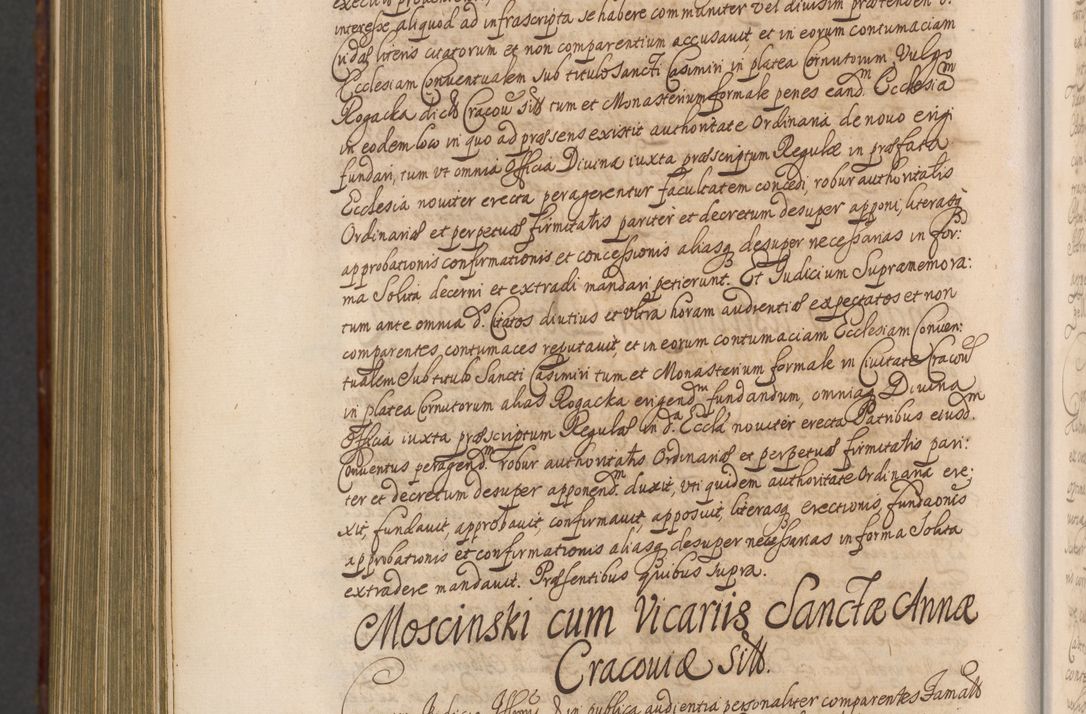 interesse aliquod ad infrascripta se habere communiter vel divisim prætenden d:
cidas literis citatorum et non comparentium accusavit et in eorum contumaciam
Ecclesiam Conventualem sub titulo Sancti Casimiri in platea Cornutorum Vulgo
Rogacka dicta Cracov: sitt tum et Monasterium formale penes eandm Ecclesiam
in eodem loco in quo ad præsens existit authoritate Ordinaria de novo erigi
fundari, tum ut omnia Officia Divina iuxta præscriptum Regulæ in præfata
Ecclesia noviter erecta peragerentur facultatem concedi, robur authoritatis
Ordinariæ et perpetuæ firmitatis pariter et decretum desuper apponi, literasq
approbationis confirmationis et concessionis aliasq desuper necessarias in for:
ma Solita decerni et extradi mandari petierunt. Et Iudicium Supramemora:
tum ante omnia d. Citatos diutius et ultra horam audientiæ expectatos et non
comparentes, contumaces reputavit et in eorum contumaciam Ecclesiam Conven:
tualem Sub titulo Sancti Casimiri tum et Monasterium formale in Civitate Cracov
in platea Cornutorum alias Rogacka erigendm fundandum, omniaq Divina
Officia iuxta præscriptum Regulæ in da Eccla noviter erecta Patribus eiusdm
Conventus peragendm robur authoritatis Ordinariæ et perpetuæ firmitatis pari:
ter et decretum desuper apponendm duxit, uti quidem authoritate Ordinaria ere:
xit, fundavit, approbavit, confirmavit, apposuit, literasq erectionis, fundaonis
approbationis et confirmationis aliasq desuper necessarias in forma Solita
extradere mandavit. Præsentibus quibus supra.
Moscinski cum Vicariis Sanctæ Annæ
Cracoviæ sitt.
in publica audientia personaliter comparentes Famatt